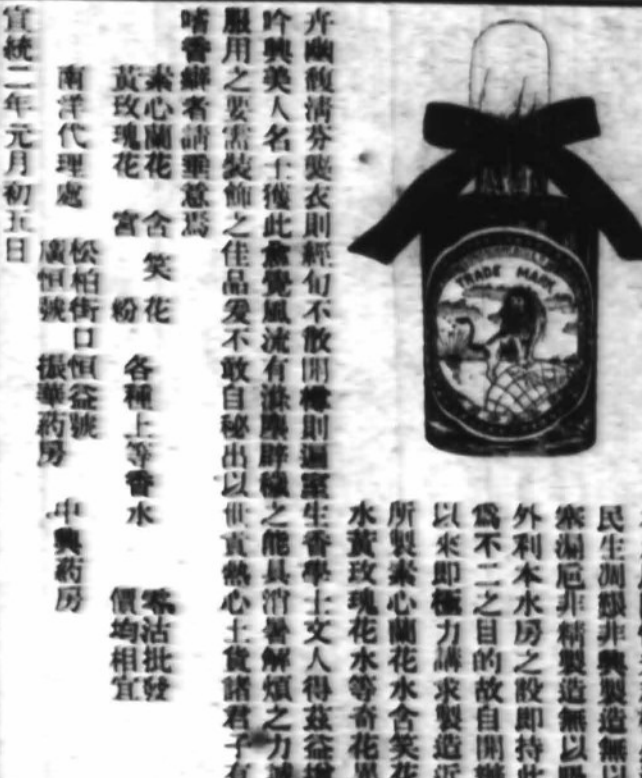 TRADE MARK
民生凋敝非興製造無以
塞漏巵非精製造無以
外利本水房之設即持此
爲不二之目的故自開辦
以來即極力講求製造近
所製素心蘭花水含笑花
水黃玫瑰花水等奇花異
卉幽馥清芬襲衣則經旬不散開樽則滿室生香學士文人得茲益增
吟興美人名士獲此愈覺風流有滌膻辟穢之能具消暑解煩之力誠
服用之要需裝飾之佳品爰不敢自秘出以世貢熱心土貨諸君子有
嗜香癖者請垂意焉
素心蘭花 含笑花
黃玫瑰花 宮粉
各種上等香水
零沽批發
價均相宜
南洋代理處
松柏街口恒益號
廣恒號 振華葯房 中興葯房
宣統二年元月初五日